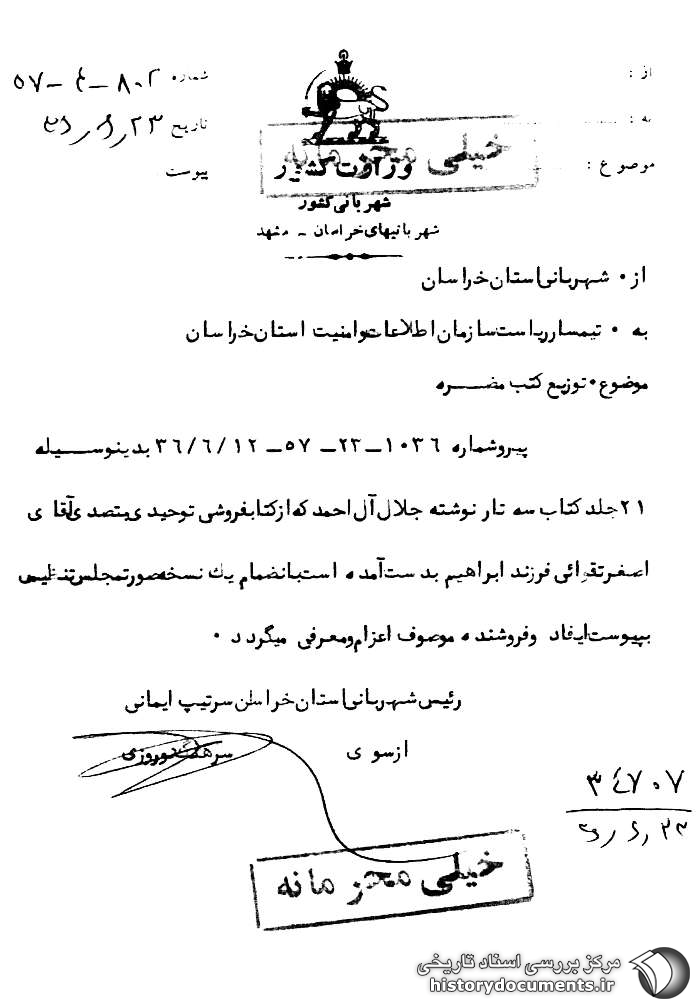 از :
شماره ۸۰۲ – ۴ – ۵۷
به :
تاریخ ۳۶/۶/۲۳
موضوع :
پیوست
خیلی محرمانه
وزارت کشور
شهربانی کشور
شهربانیهای خراسان – مشهد
از ۰ شهربانی استان خراسان
به ۰ تیمسار ریاست سازمان اطلاعات و امنیت استان خراسان
موضوع ۰ توزیع کتب مضره
پیرو شماره ۱۰۳۶–۲۳– ۵۷– ۳۶/۶/۱۲ بدینوسیله
۲۱ جلد کتاب سه تار نوشته جلال آل احمد که از کتابفروشی توحیدی بتصدی آقای
اصغر تقوائی فرزند ابراهیم بدست آمده است بانضمام یک نسخه صورتمجلس تنظیمی
بپیوست ایفاد و فروشنده موصوف اعزام و معرفی میگردد ۰
رئیس شهربانی استان خراسان سرتیپ ایمانی
از سوی
سرهنگ نوروزی
۳۴۷۰۷
۳۶/۶/۲۳
خیلی محرمانه
مرکز بررسی اسناد تاریخی
historydocuments.ir